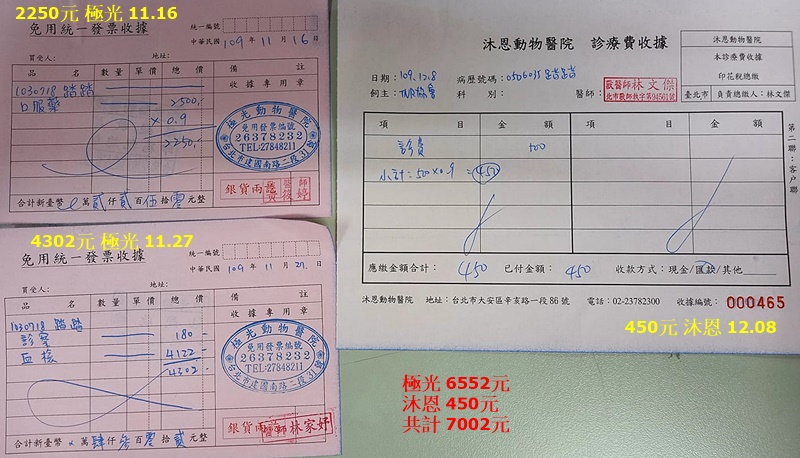 2250元 極光 11.16
免用統一發票收據
統一編號
中華民國 109 年 11 月 16 日
買受人: 地址:
品 名 數量 單價 總價 備 註
收據專用章
1030718 踏踏
口服藥 2500
x 0.9
2250
極光動物醫院
免用發票編號
26378232
TEL:27848211
台北市建國南路二段31號
銀貨兩訖
合計新臺幣 萬貳仟貳百伍拾零元整
4302元 極光 11.27
免用統一發票收據
統一編號
中華民國 109 年 11 月 27 日
買受人: 地址:
品 名 數量 單價 總價 備 註
收據專用章
1030718 踏踏
診察 180
血檢 4122
4302
極光動物醫院
免用發票編號
26378232
TEL:27848211
台北市建國南路二段31號
銀貨兩訖
醫師林家妤
合計新臺幣 x 萬肆仟參百零拾貳元整
沐恩動物醫院 診療費收據
沐恩動物醫院
本診療費收據
印花稅總繳
臺北市 負責總繳人:林文傑
日期:109.12.8 病歷號碼:0506035 踏踏
飼主:TNR協會 科 別: 醫師:
獸醫師林文傑
北市獸師執字第94561號
項 目 金 額 項 目 金 額
診費 500
小計:500x0.9=450
第二聯:客戶聯
應繳金額合計: 450 已付金額: 450 收款方式:現金/匯款/其他
沐恩動物醫院 地址:台北市大安區辛亥路一段86號 電話:02-23782300 收據編號: 000465
450元 沐恩 12.08
極光 6552元
沐恩 450元
共計 7002元